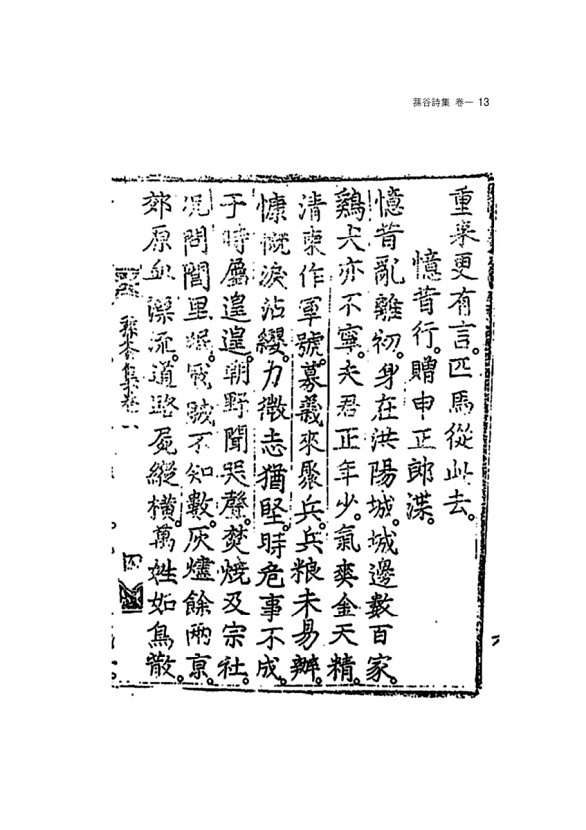 蓀谷詩集 卷一 13
重來更有言。匹馬從此去。
憶昔行。贈申正郎渫。
憶昔亂離初。身在洪陽城。城邊數百家。
鷄犬亦不寧。夫君正年少。氣爽金天精。
清東作軍號。募義來聚兵。兵粮未易辦。
慷慨淚沾纓。力微志猶堅。時危事不成。
于時屬遑遑。朝野聞哭聲。焚燒及宗社。
况問閭里氓。戰賊不知數。灰燼餘兩京。
郊原血漂流。道路屍縱橫。萬姓如鳥散。
蓀谷集卷 四